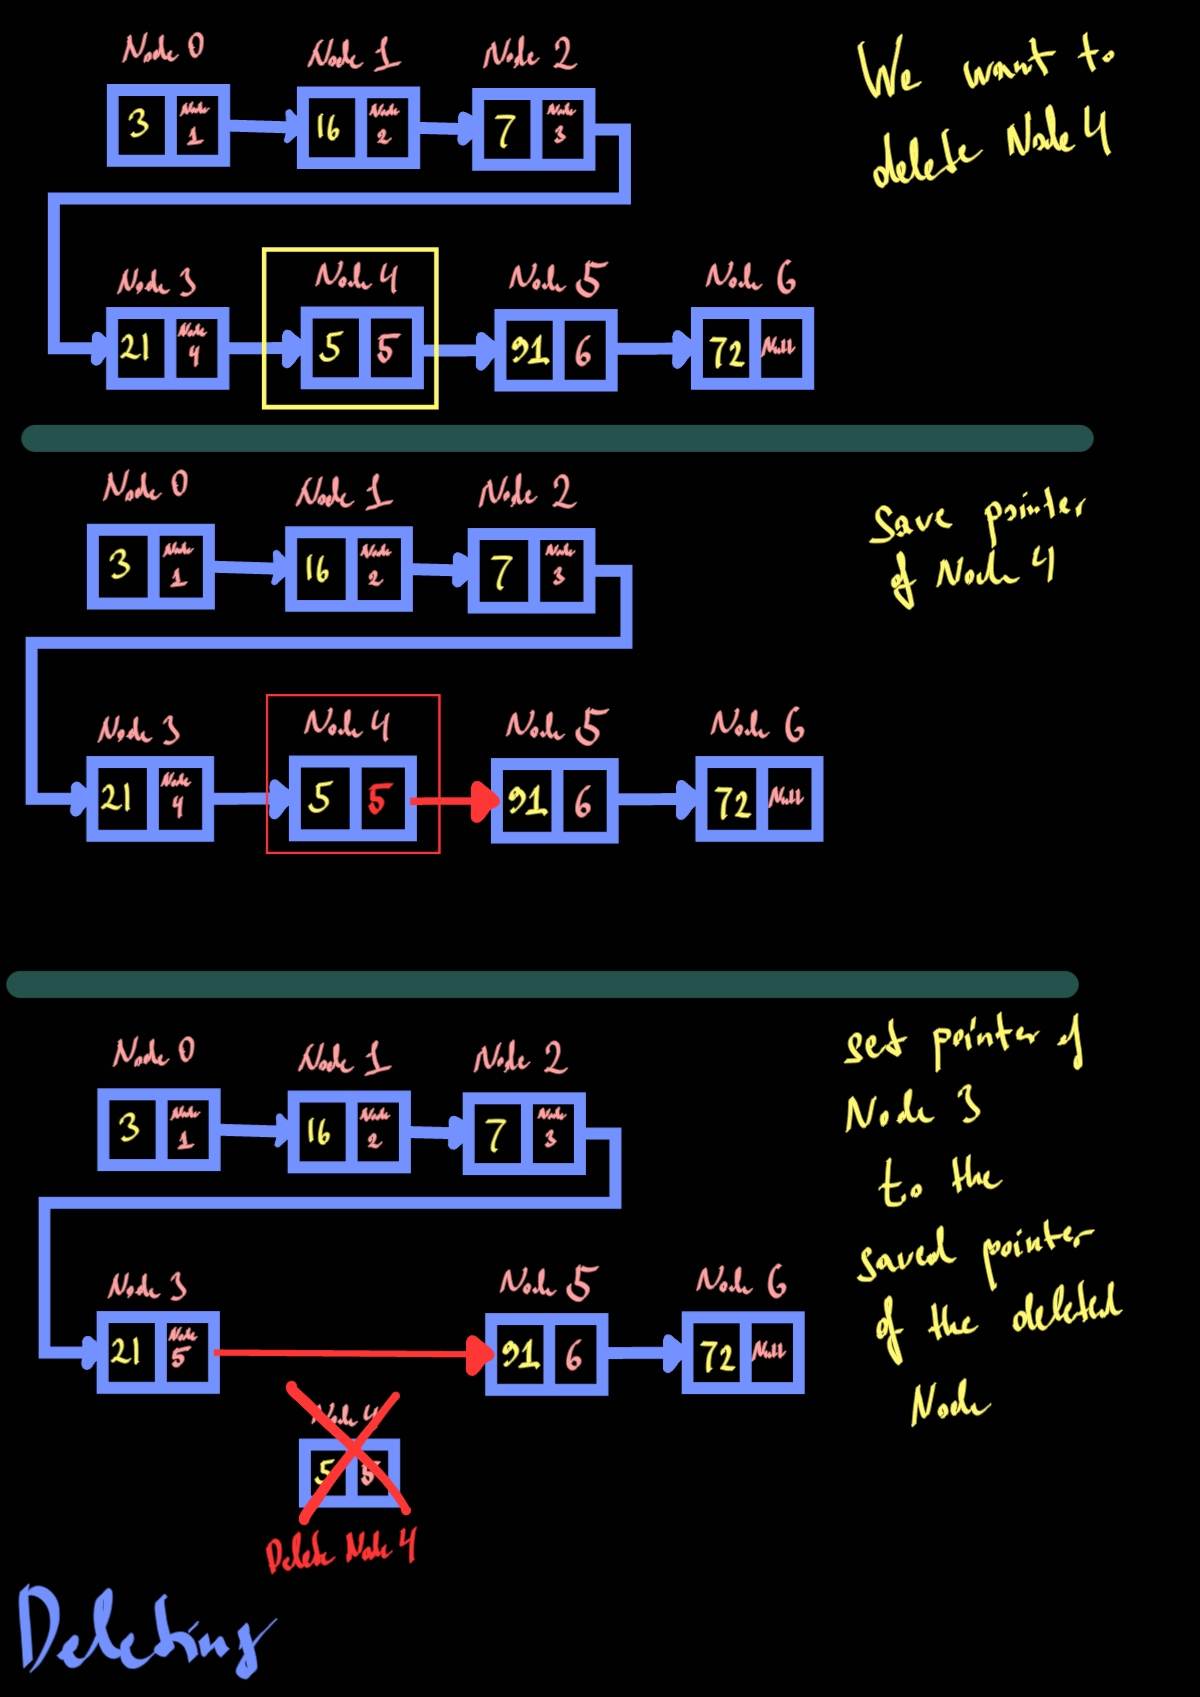 Node 0 Node 1 Node 2
3 Node 1 16 Node 2 7 Node 3
We want to
delete Node 4
Node 3 Node 4 Node 5 Node 6
21 Node 4 5 5 91 6 72 Null
Node 0 Node 1 Node 2
3 Node 1 16 Node 2 7 Node 3
Save pointer
of Node 4
Node 3 Node 4 Node 5 Node 6
21 Node 4 5 5 91 6 72 Null
Node 0 Node 1 Node 2
3 Node 1 16 Node 2 7 Node 3
set pointer of
Node 3
to the
saved pointer
of the deleted
Node
Node 3 Node 5 Node 6
21 Node 5 91 6 72 Null
Node 4
5 5
Delete Node 4
Deleting